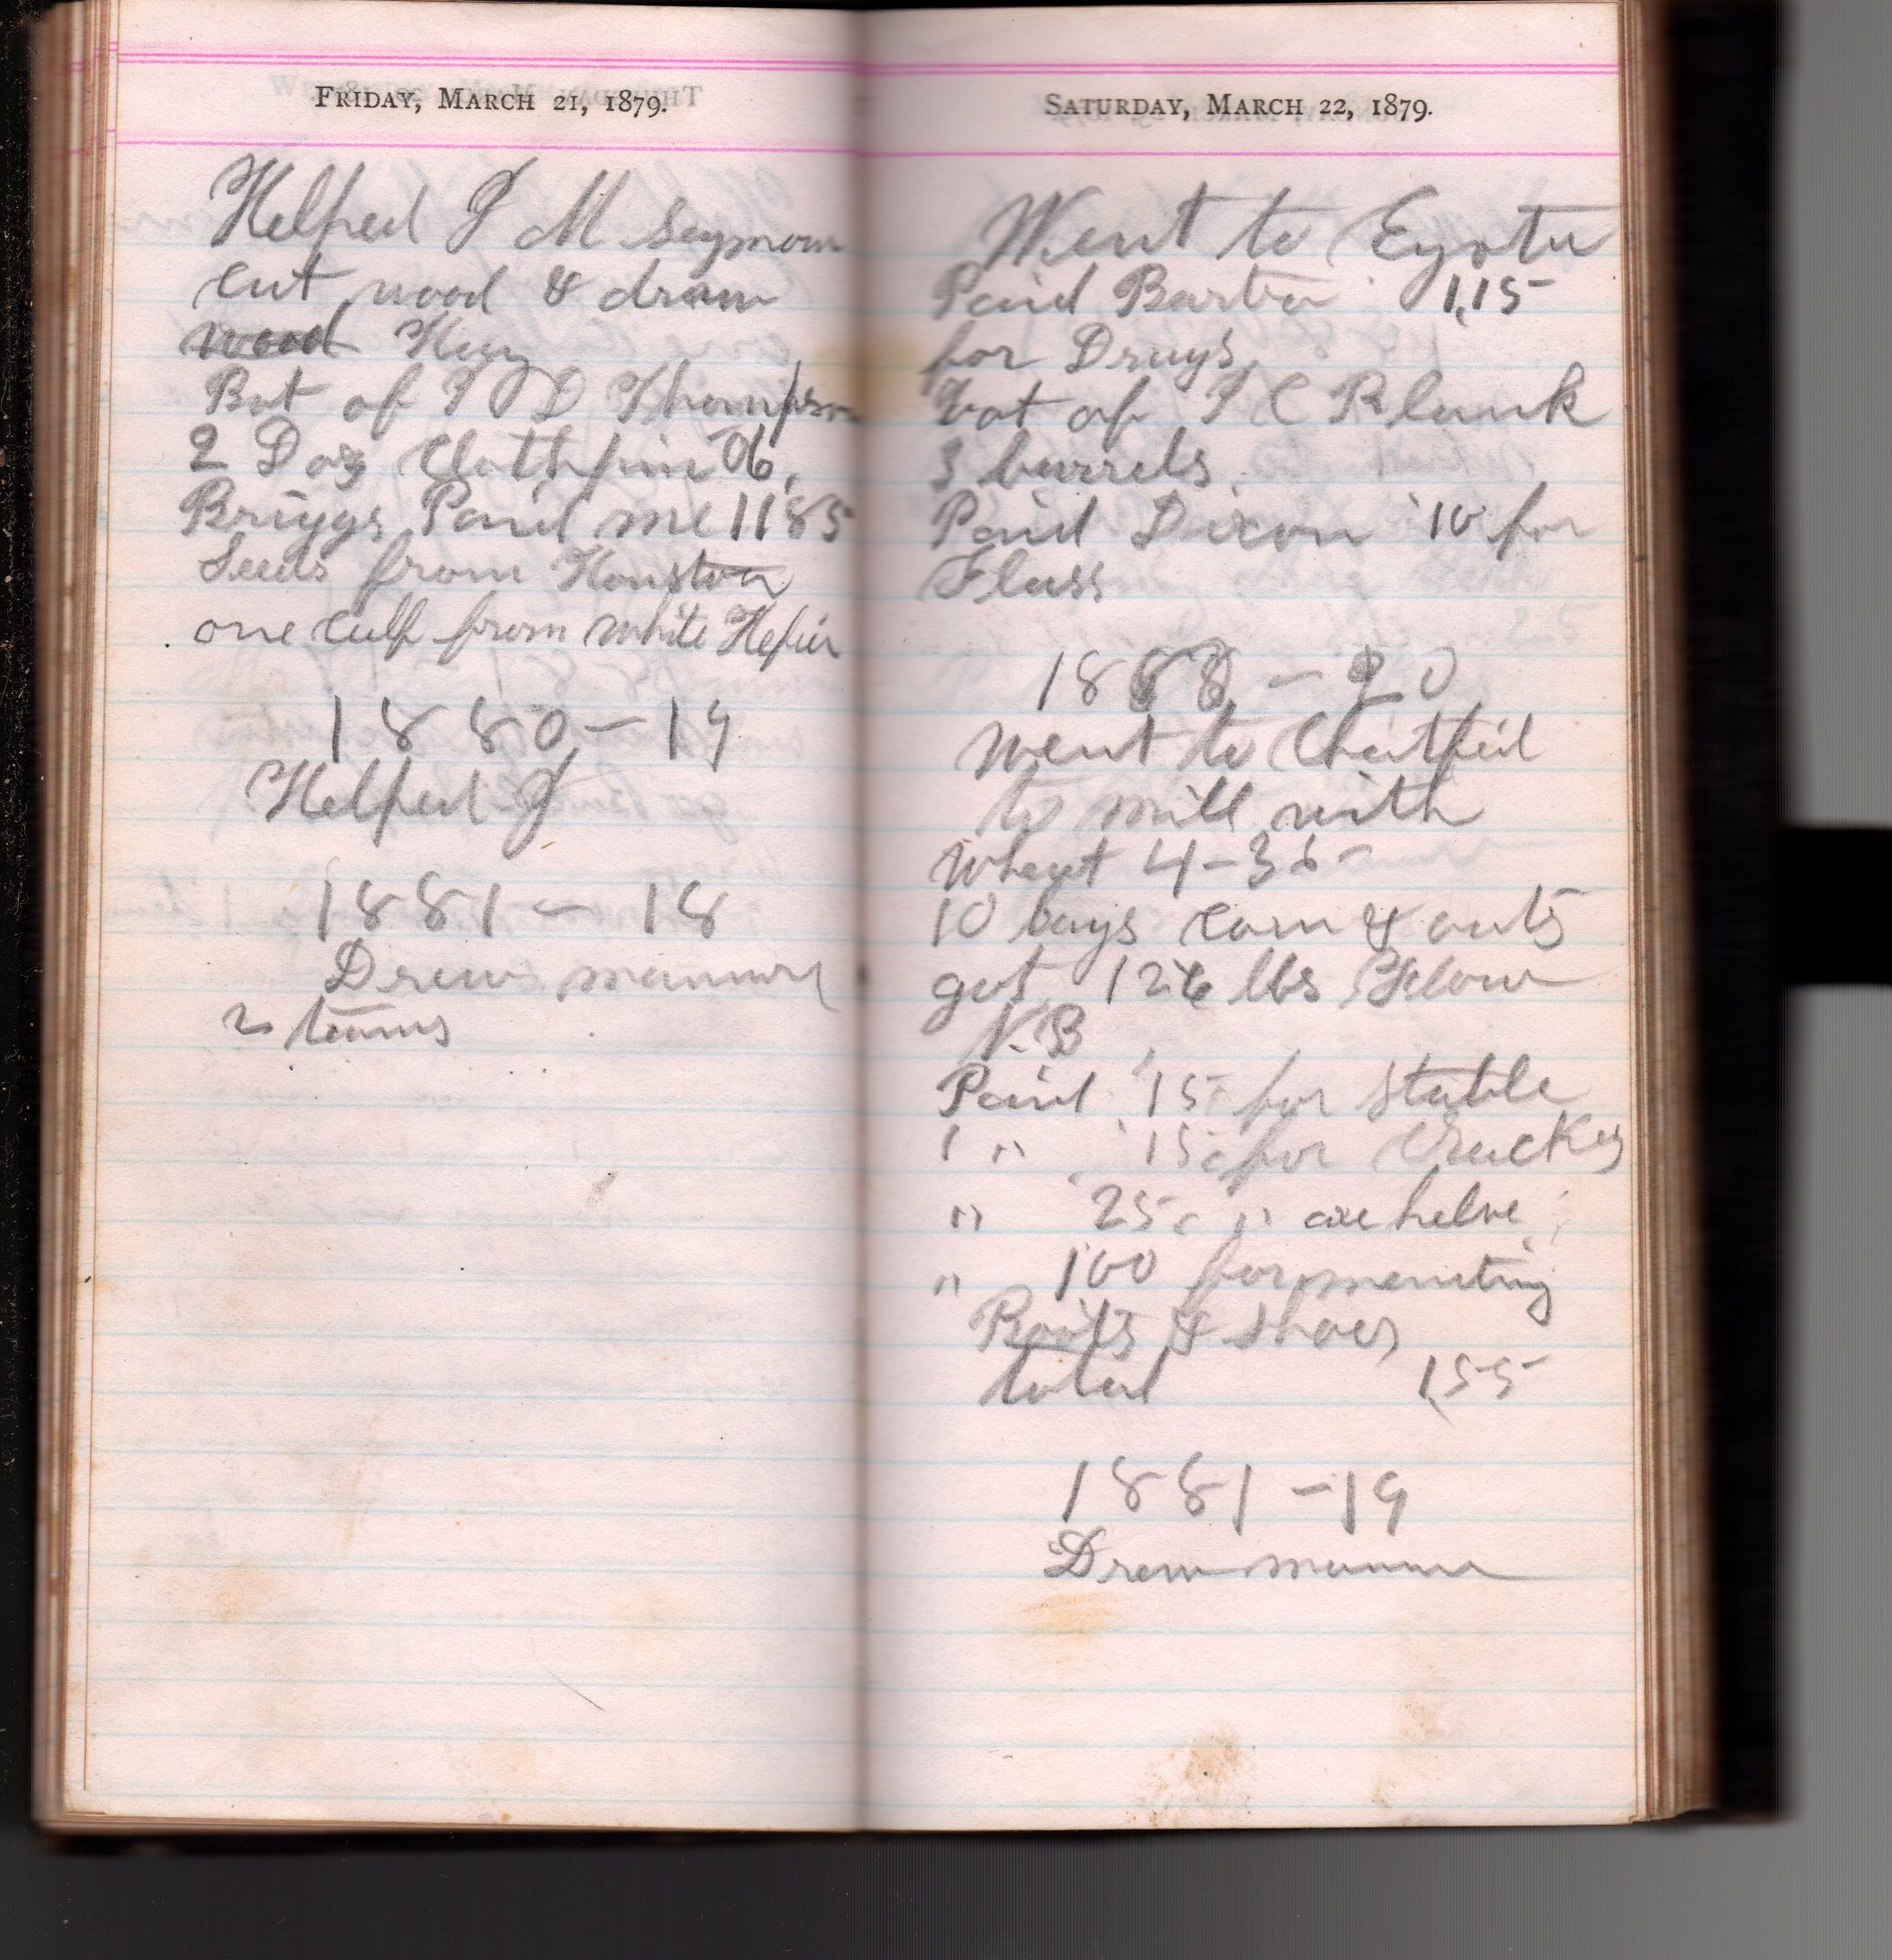 FRIDAY, MARCH 21, 1879.
Helped J M Seymour
cut wood & draw
wood Hay
Bot of J D Thompson
2 Doz Clothpins 06,
Briggs Paid me 11 85
Seeds from Houston
one Calf from white Hefier
1880-19
Helped J
1881 - 18
Drew manure
2 teams
SATURDAY, MARCH 22, 1879.
Went to Eyota
Paid Barton 1,15
for Drugs
bot of J C Plank
3 barrels
Paid Dixon 10 for
Flass
188 - 20
Went to Chatfeild
to mill with
Wheat 4-36
10 bags corn & oats
got 126 lbs Flour
N.B
Paid 15 for Stable
1 " 15c for Crackers
" 25c " axe helve
" 100 for menting
Boots & shoes
total 1,55
1881-19
Drew manure